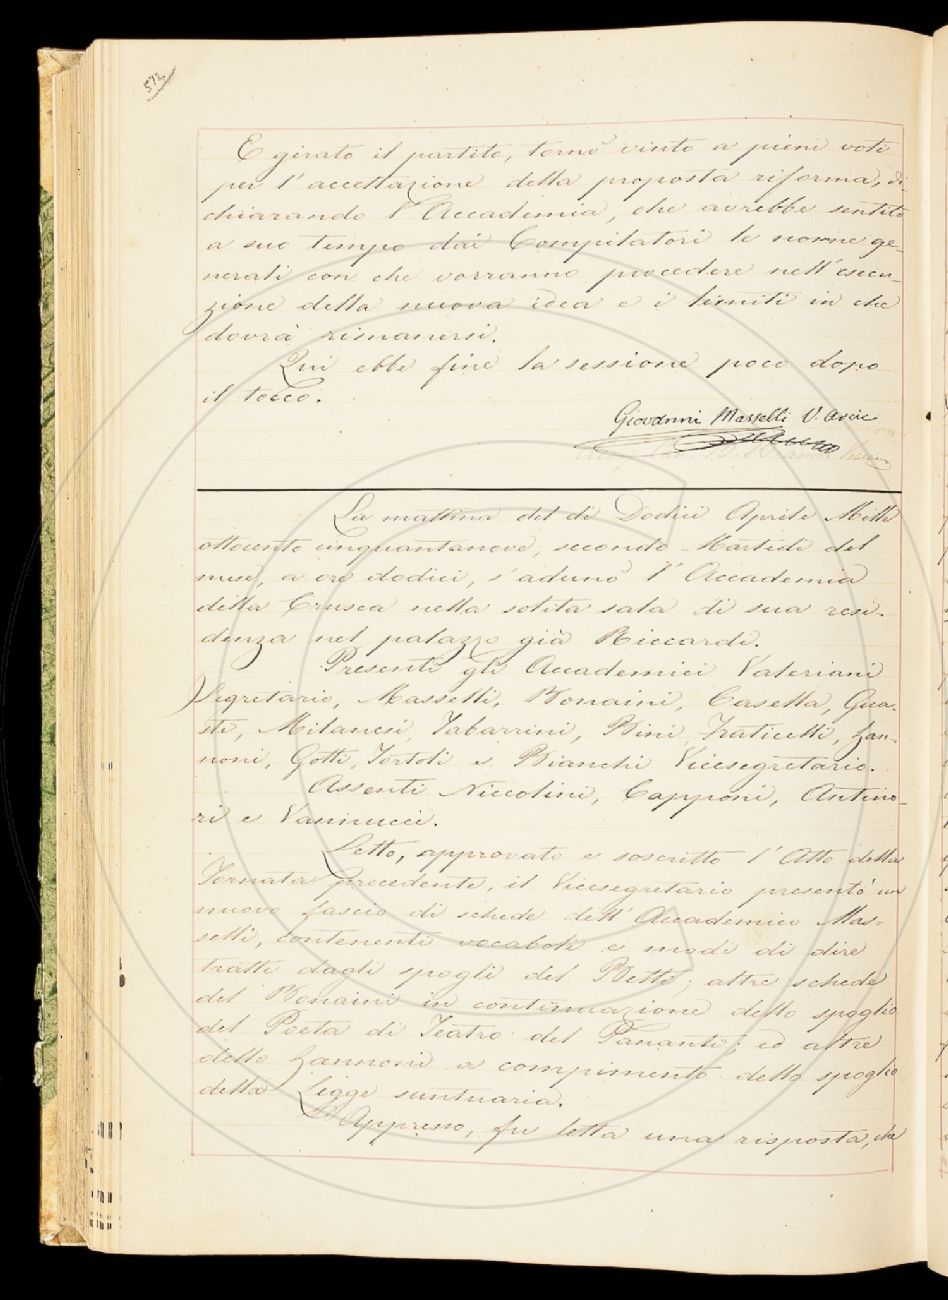 572
E girato il partito, tornò vinto a pieni voti
per l'accettazione della proposta riforma, di-
chiarando l'Accademia, che avrebbe sentito
a suo tempo dai Compilatori le norme ge-
nerali con che vorranno procedere nell'esecu-
zione della nuova idea e i limiti in che
dovrà rimanersi.
Qui ebbe fine la sessione poco dopo
il tocco.
Giovanni Masselli V. Arcic
La mattina del dì Dodici Aprile Mille
ottocento cinquantanove, secondo Martedì del
mese, a ore dodici, s'adunò l'Accademia
della Crusca nella solita sala di sua resi-
denza nel palazzo già Riccardi.
Presenti gli Accademici Valeriani
Segretario, Masselli, Bonaini, Casella, Gua-
sti, Milanesi, Tabarrini, Bini, Fraticelli, Zan-
noni, Gotti, Tortoli e Bianchi Vicesegretario.
Assenti Niccolini, Capponi, Antino-
ri e Vannucci.
Letto, approvato e soscritto l'Atto della
Tornata precedente, il Vicesegretario presentò un
nuovo fascio di schede dell'Accademico Mas-
selli, contenenti vocaboli e modi di dire
tratti dagli spogli del Betti; altre schede
del Bonaini in continuazione dello spoglio
del Poeta di Teatro del Pananti; ed altre
dello Zannoni a compimento dello spoglio
della Legge suntuaria.
Appresso, fu letta una risposta, che